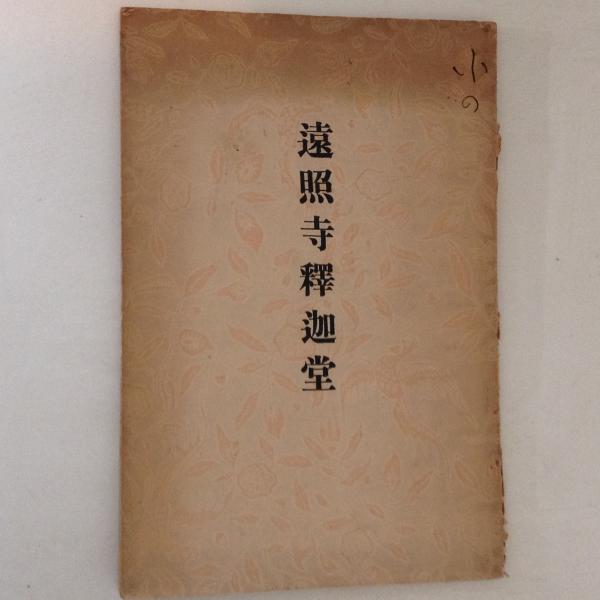 遠照寺釋迦堂
小の